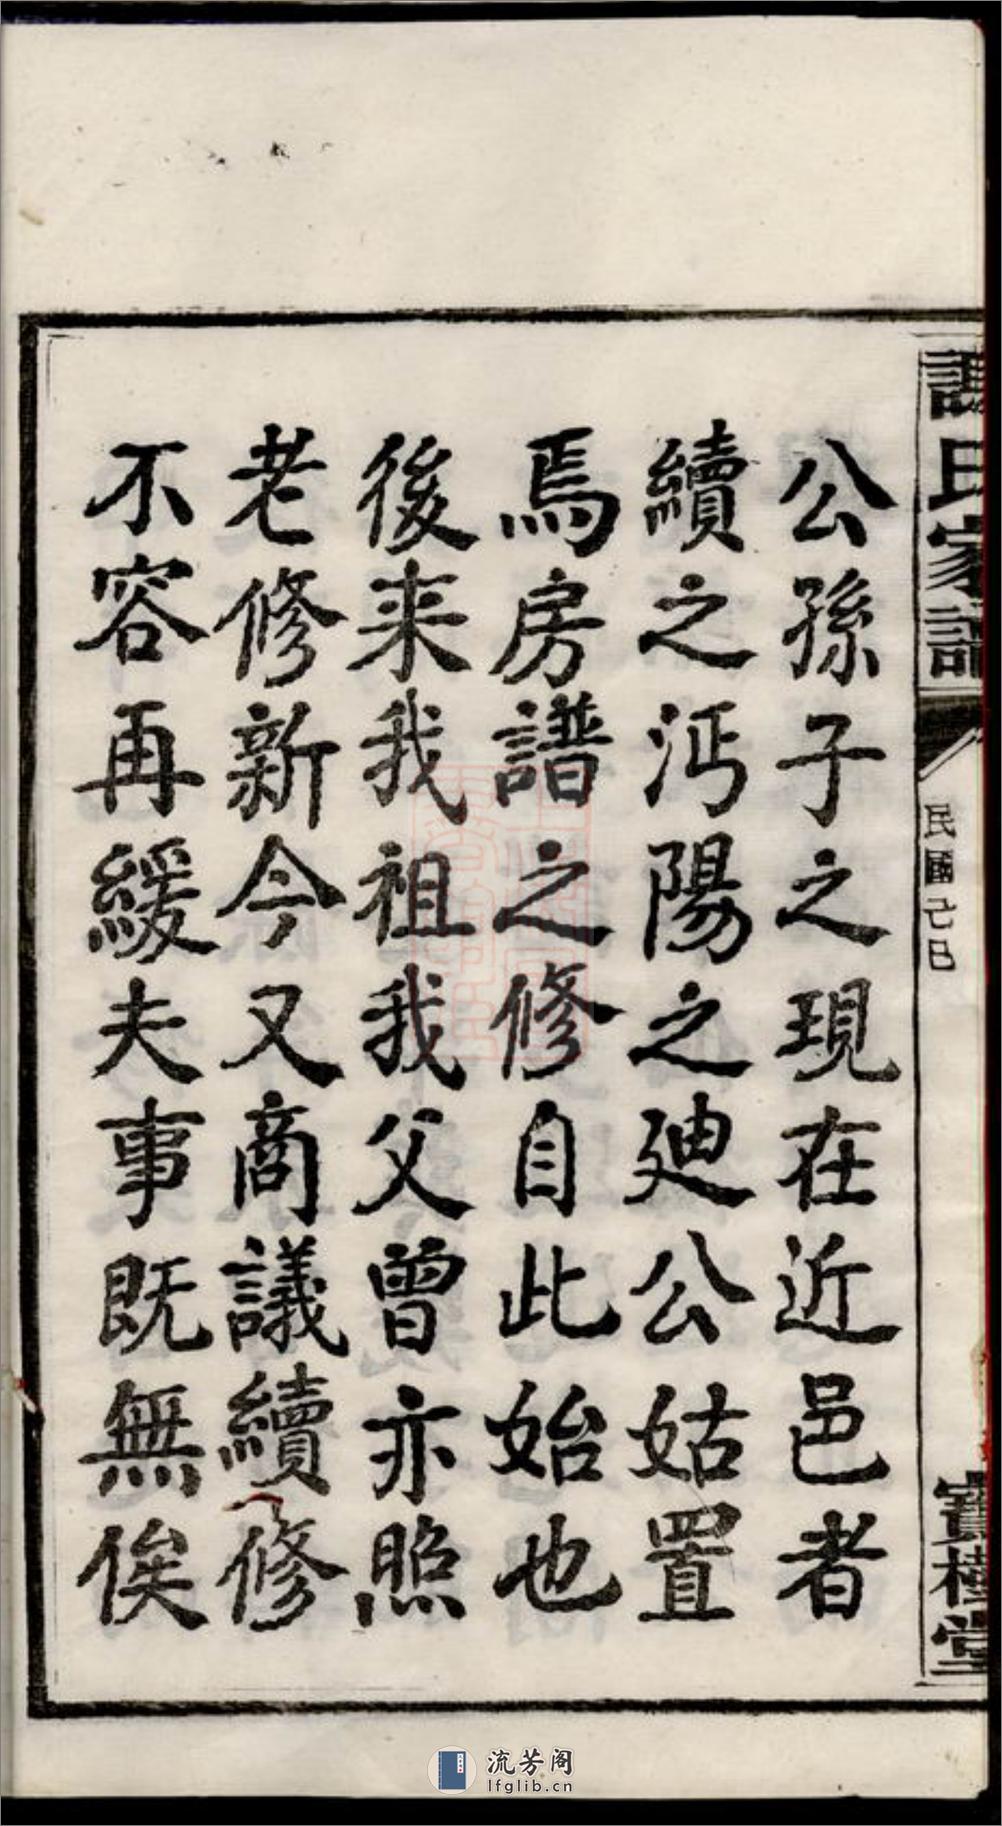 公孫子之現在近邑者
續之沔陽之廸公姑置
焉房譜之修自此始也
後来我祖我父曾亦照
老修新今又商議續修
不容再緩夫事既無俟
氏家譜
民國己巳
寶樹堂
流芳阁
lfglib.cn